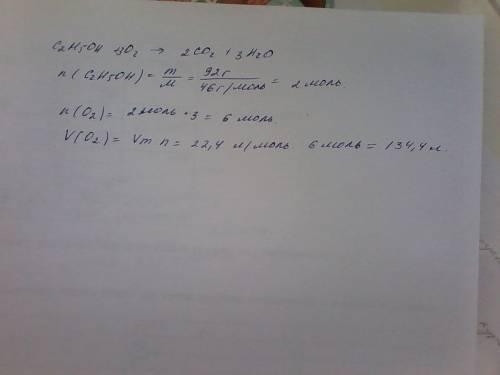 C2H5OH + 3O2 → 2CO2 + 3H2O
n(C2H5OH) = m/M = 92г/46г/моль = 2 моль.
n(O2) = 2моль · 3 = 6 моль.
V(O2) = Vm n = 22,4 л/моль 6 моль = 134,4 л.